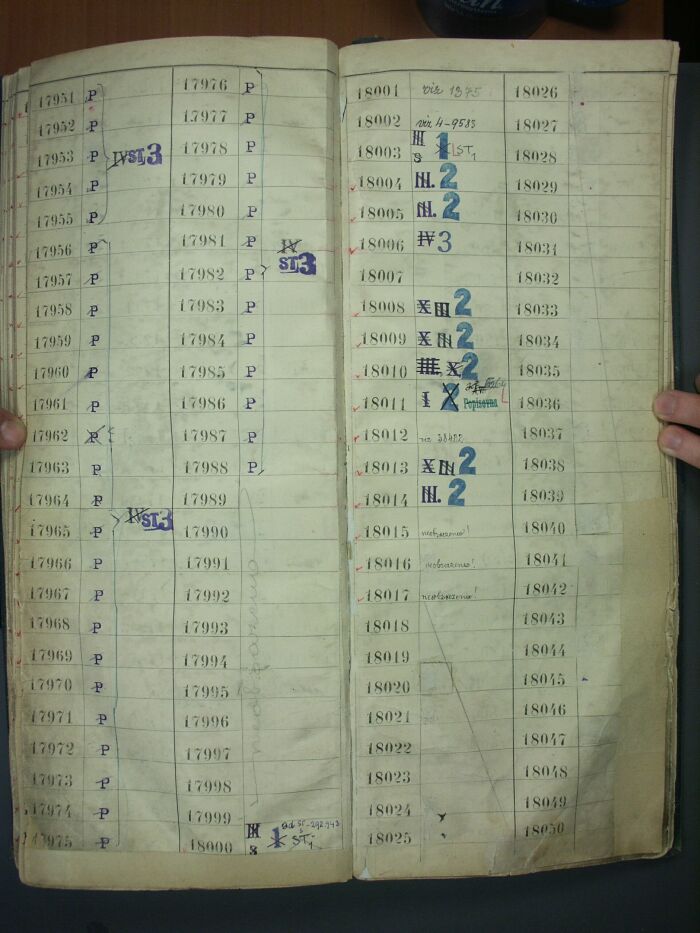 17951 P
17952 P
17953 P IV ST. 3
17954 P
17955 P
17956 P
17957 P
17958 P
17959 P
17960 P
17961 P
17962 P
17963 P
17964 P
17965 P IV ST. 3
17966 P
17967 P
17968 P
17969 P
17970 P
17971 P
17972 P
17973 P
17974 P
17975 P
17976 P
17977 P
17978 P
17979 P
17980 P
17981 P
17982 P IV ST. 3
17983 P
17984 P
17985 P
17986 P
17987 P
17988 P
17989
17990
17991
17992
17993
17994
17995
17996
17997
17998
17999
18000 III 8 1 ST1
neobsazeno
18001 viz 1375
18002 viz 4-9583
18003 III 8 1 ST1
18004 III. 2
18005 III. 2
18006 IV 3
18007
18008 X III 2
18009 X III 2
18010 III, X, 2
18011 I 2 Popisovna
18012
18013 X III 2
18014 III. 2
18015 neobsazeno!
18016 neobsazeno!
18017 neobsazeno!
18018
18019
18020
18021
18022
18023
18024
18025
18026
18027
18028
18029
18030
18031
18032
18033
18034
18035
18036
18037
18038
18039
18040
18041
18042
18043
18044
18045
18046
18047
18048
18049
18050